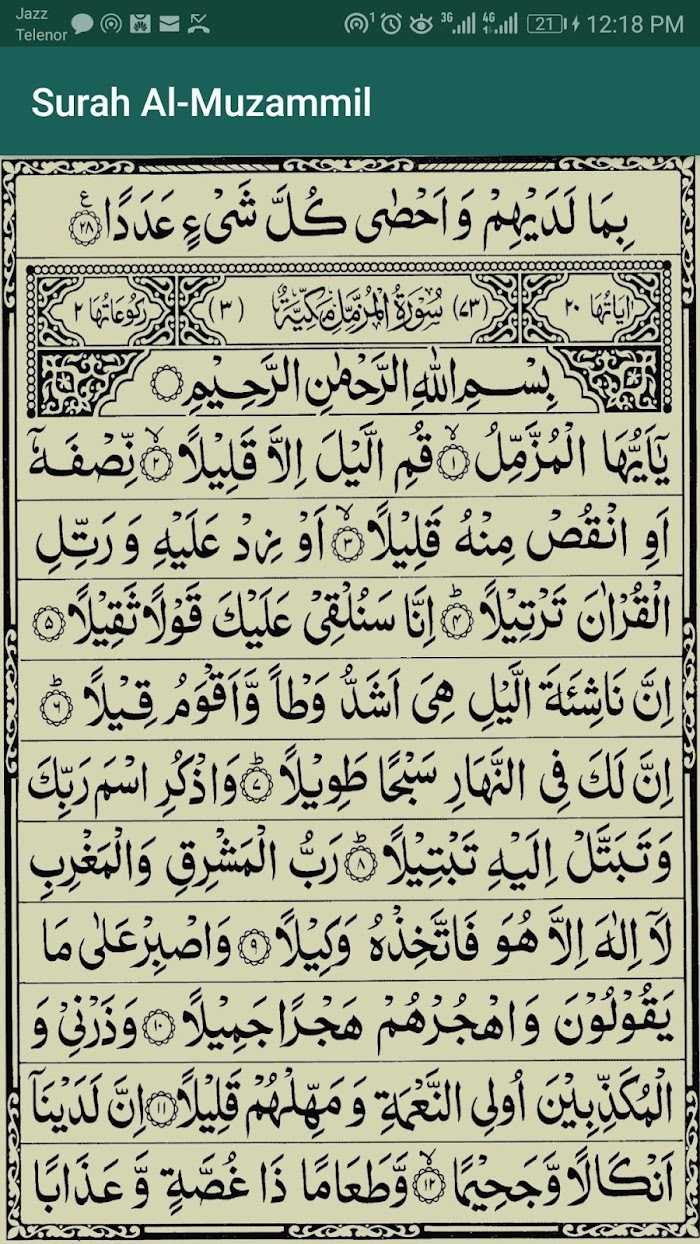 Jazz
Telenor
1 3G 4G 21 12:18 PM
Surah Al-Muzammil
بِمَا لَدَيْهِمْ وَ اَحْصٰى كُلَّ شَىْءٍ عَدَدًا ۲۸ ع
اٰيَاتُهَا ۲۰ (۷۳) سُوْرَةُ الْمُزَّمِّلِ مَكِّيَّةٌ (۳) رُكُوْعَاتُهَا ۲
بِسْمِ اللهِ الرَّحْمٰنِ الرَّحِيْمِ
يٰٓاَيُّهَا الْمُزَّمِّلُ ۙ۱ قُمِ الَّيْلَ اِلَّا قَلِيْلًا ۙ۲ نِّصْفَهٗٓ
اَوِ انْقُصْ مِنْهُ قَلِيْلًا ۙ۳ اَوْ زِدْ عَلَيْهِ وَ رَتِّلِ
الْقُرْاٰنَ تَرْتِيْلًا ؕ۴ اِنَّا سَنُلْقِىْ عَلَيْكَ قَوْلًا ثَقِيْلًا ۵
اِنَّ نَاشِئَةَ الَّيْلِ هِىَ اَشَدُّ وَطْاً وَّاَقْوَمُ قِيْلًا ؕ۶
اِنَّ لَكَ فِى النَّهَارِ سَبْحًا طَوِيْلًا ؕ۷ وَاذْكُرِ اسْمَ رَبِّكَ
وَتَبَتَّلْ اِلَيْهِ تَبْتِيْلًا ؕ۸ رَبُّ الْمَشْرِقِ وَالْمَغْرِبِ
لَآ اِلٰهَ اِلَّا هُوَ فَاتَّخِذْهُ وَكِيْلًا ۹ وَاصْبِرْ عَلٰى مَا
يَقُوْلُوْنَ وَاهْجُرْهُمْ هَجْرًا جَمِيْلًا ۱۰ وَذَرْنِىْ وَ
الْمُكَذِّبِيْنَ اُولِى النَّعْمَةِ وَ مَهِّلْهُمْ قَلِيْلًا ۱۱ اِنَّ لَدَيْنَآ
اَنْكَالًا وَّجَحِيْمًا ۙ۱۲ وَّطَعَامًا ذَا غُصَّةٍ وَّ عَذَابًا